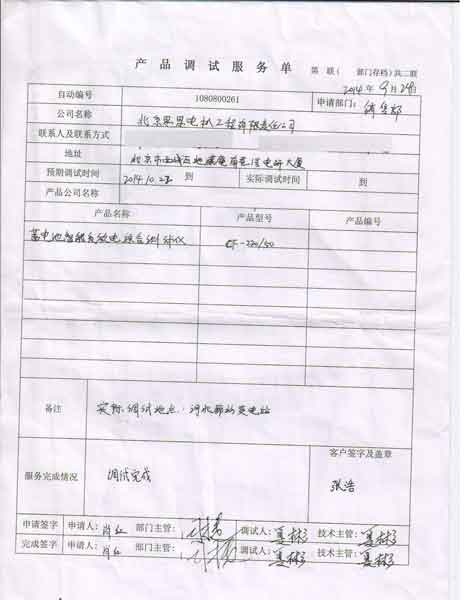 产品调试服务单 第 联( 部门存档)共二联
2014年9月24日
自动编号 1080800261 申请部门: 销售部
公司名称 北京
联系人及联系方式
地址 北京市西城区地藏庵南巷1号电研大厦
预期调试时间 2014.10.22 到 实际调试时间 到
产品公司名称
产品名称 产品型号 产品编号
蓄电池智能充放电综合测试仪 CF-220/50
备注 实际调试地点:河北廊坊变电站
客户签字及盖章
服务完成情况 调试完成
张浩
申请签字 申请人: 肖红 部门主管: 调试人: 夏彬 技术主管: 夏彬
完成签字 申请人: 肖红 部门主管: 调试人: 夏彬 技术主管: 夏彬